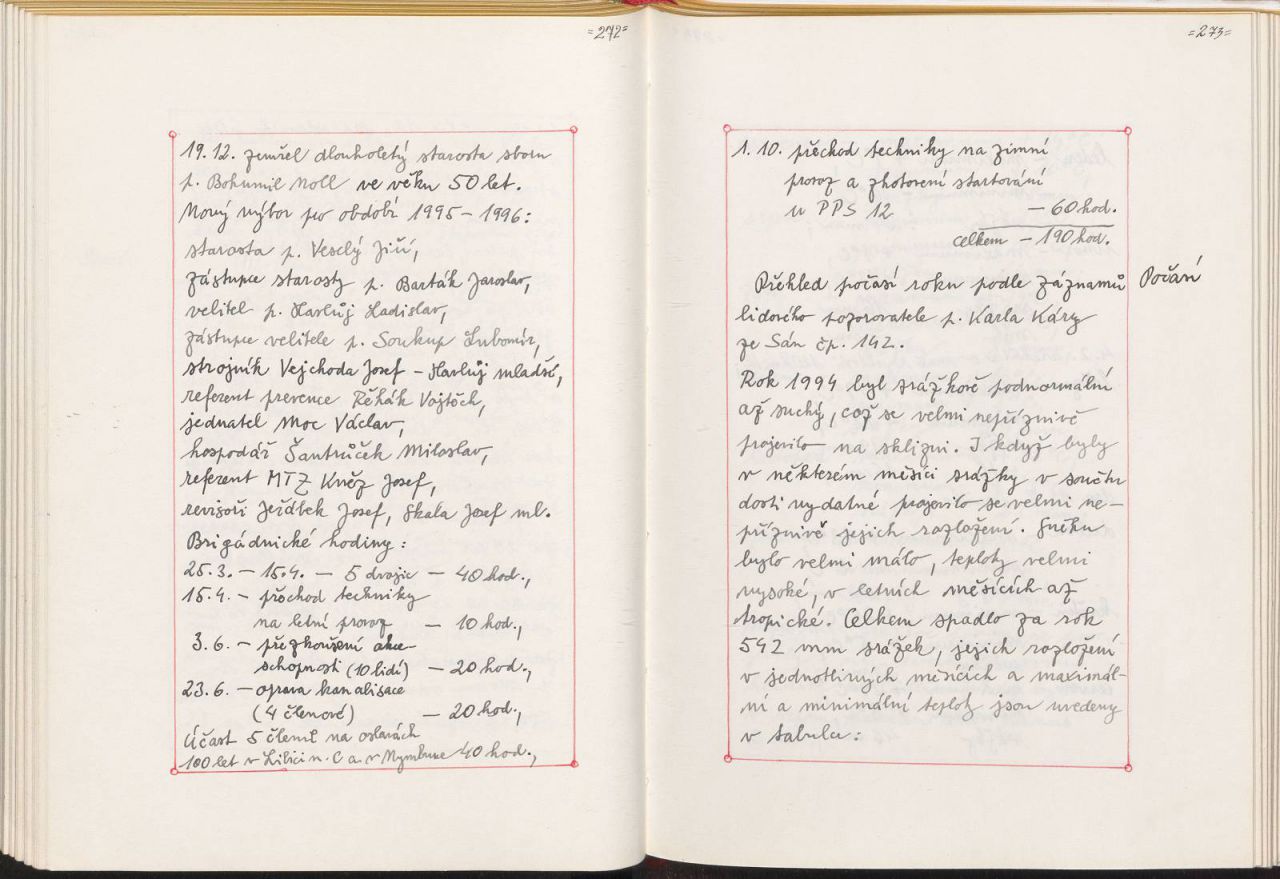 =272=
19.12. zemřel dlouholetý starosta sboru
p. Bohumil Noll ve věku 50 let.
Nový výbor pro období 1995 - 1996:
starosta p. Veselý Jiří,
zástupce starosty p. Barták Jaroslav,
velitel p. Havlůj Ladislav,
zástupce velitele p. Soukup Lubomír,
strojník Vejchoda Josef - Havlůj mladší,
referent prevence Řehák Vojtěch,
jednatel Moc Václav,
hospodář Šantrůček Miloslav,
referent MTZ Kněz Josef,
revisoři Jeřábek Josef, Skala Josef ml.
Brigádnické hodiny:
25.3. - 15.4. - 5 dvojic - 40 hod.,
15.4. - přechod techniky
na letní provoz - 10 hod.,
3.6. - přezkoušení akce-
schopnosti (10 lidí) - 20 hod.,
23.6. - oprava kanalisace
(4 členové) - 20 hod.,
Účast 5 členů na oslavách
100 let v Lilici n. C a. v Nymburce 40 hod.,
=273=
1.10. přechod techniky na zimní
provoz a zhotovení startování
u PPS 12 - 60 hod.
celkem - 190 hod.
Přehled počasí roku podle záznamů
Počasí
lidového pozorovatele p. Karla Káry
ze Sán čp. 142.
Rok 1994 byl srážkově podnormální
až suchý, což se velmi nepříznivě
projevilo na sklizni. I když byly
v některém měsíci srážky v součtu
dosti vydatné projevilo se velmi ne-
příznivě jejich rozložení. Sněhu
bylo velmi málo, teploty velmi
vysoké, v letních měsících až
tropické. Celkem spadlo za rok
542 mm srážek, jejich rozložení
v jednotlivých měsících a maximál-
ní a minimální teploty jsou uvedeny
v tabulce: